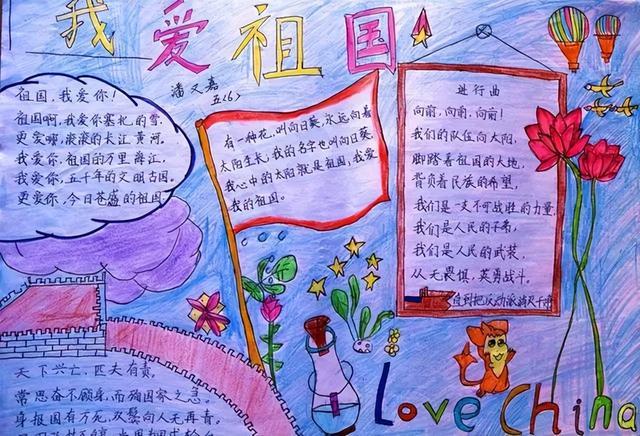 我爱祖国
潘又嘉
五(6)
祖国,我爱你!
祖国啊,我爱你塞北的雪.
更爱哪,滚滚的长江黄河。
我爱你,祖国的万里
我爱你,五千年的文明古国。
更爱你,今日苍盛的祖国
有一种花,叫向日葵,永远向着
太阳生长,我的名字也叫向日葵.
我心中的太阳就是祖国,我爱
我的祖国。
进行曲
向前,向前,向前!
我们的队伍向太阳,
脚踏着祖国的大地,
背负着民族的希望,
我们是一支不可战胜的力量,
我们是人民的子弟,
我们是人民的武装,
从无畏惧,英勇战斗。
直到把反动派消灭干净
天下兴亡,匹夫有责。
常思奋不顾身,而殉国家之急。
身报国有万死,双鬓向人无再青。
Love China